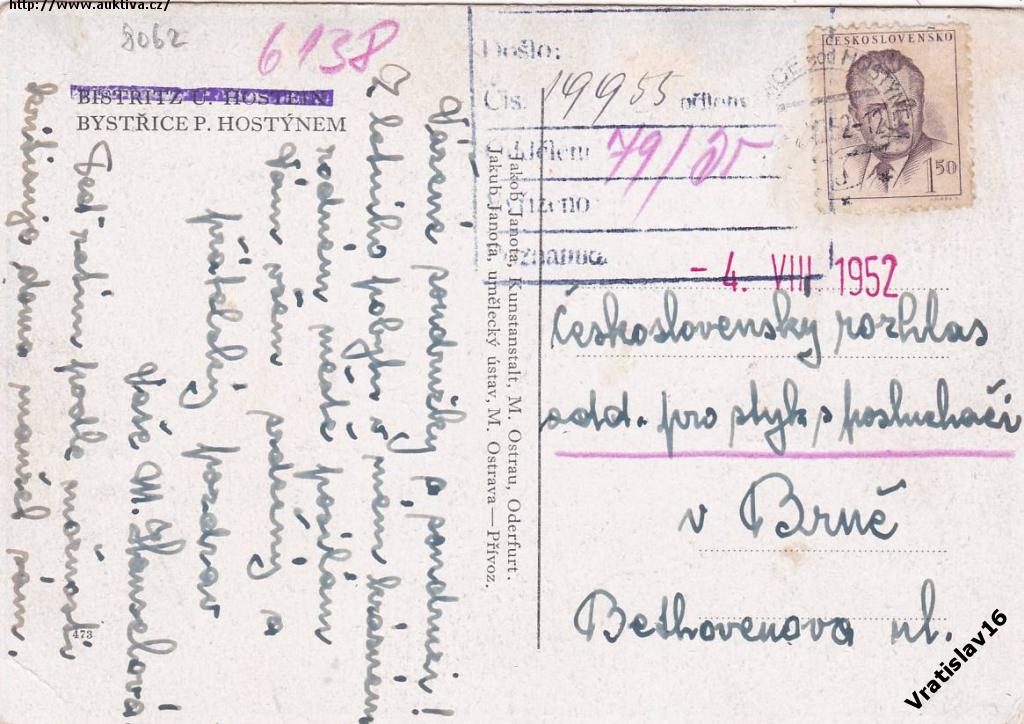 http://www.auktiva.cz/
8062
6138
BISTRITZ U. HOSTEIN
BYSTŘICE P. HOSTÝNEM
Vážené soudružky a soudruzi!
Z letního pobytu v mém krásném
rodném městě posílám
Vám všem srdečný a
přátelský pozdrav
Vaše M.
Teď zatím podle možností
doma manžel sám.
473
Jakob Janota, Kunstanstalt, M. Ostrau, Oderfurt.
Jakub Janota, umělecký ústav, M. Ostrava—Přívoz.
Došlo:
Čís. 19955 příloh
Oddělení 79/
Seznamka
- 4. VIII 1952
ČESKOSLOVENSKO
1 50
Československý rozhlas
odd. pro styk s posluchači
v Brně
Bethovenova ul.
Vratislav16